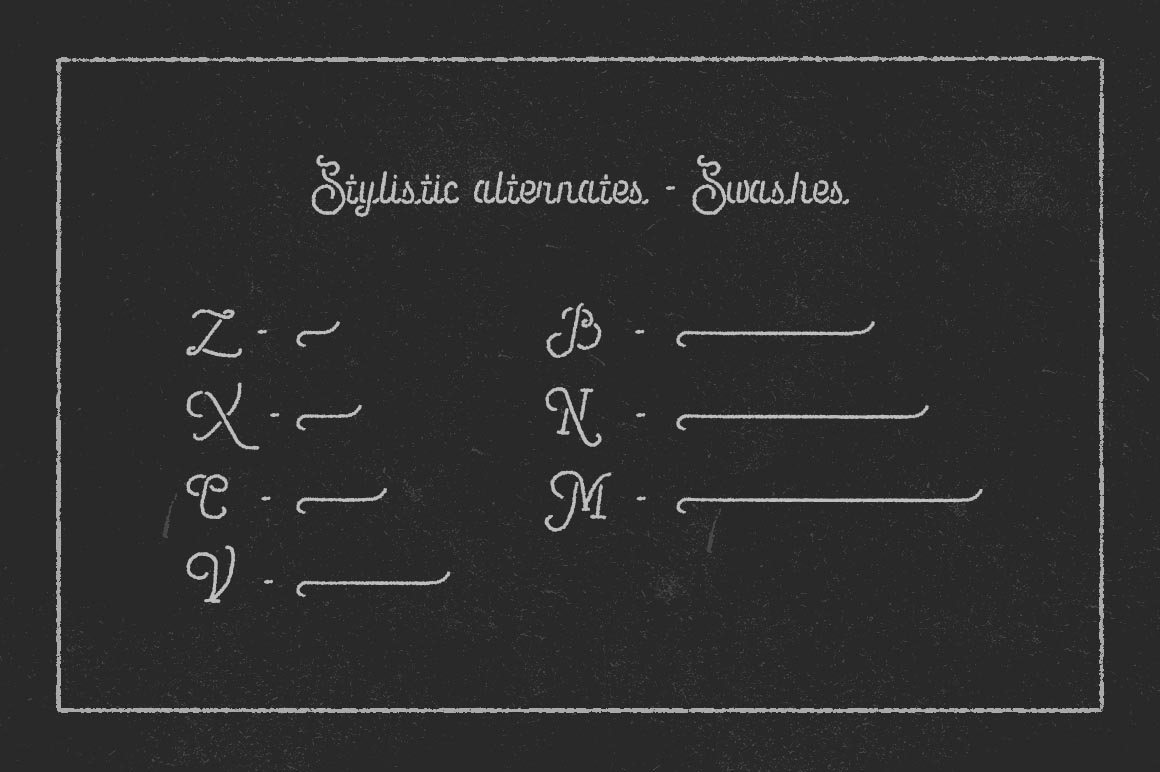 Stylistic alternates - Swashes
Z -
X -
C -
V -
B -
N -
M -